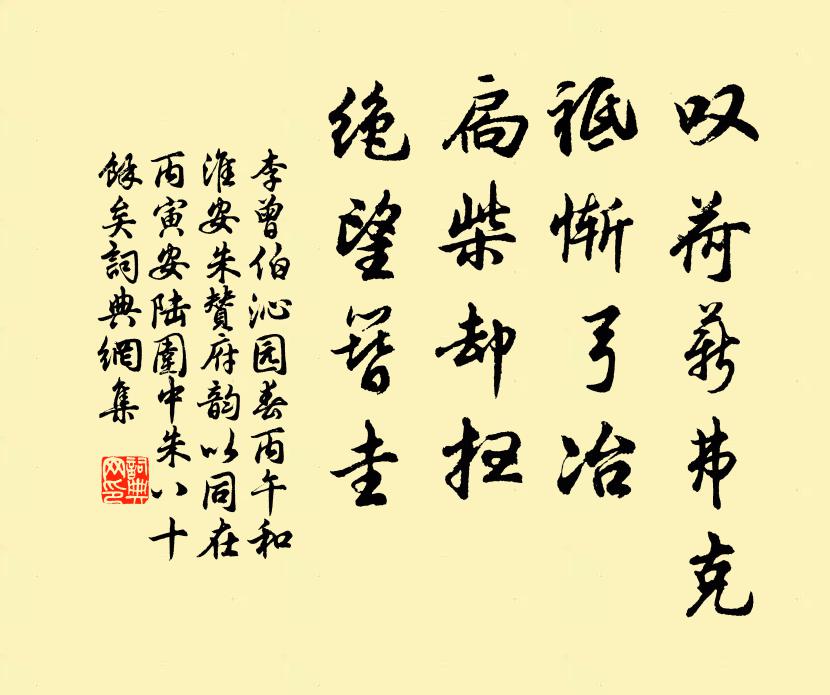 叹荷薪弗克
祗惭弓冶
扃柴却扫
绝望簪圭
李曾伯沁园春丙午和
淮安朱贊府韵以同在
丙寅安陆圍中朱八十
馀矣詞典網集
詞典网印